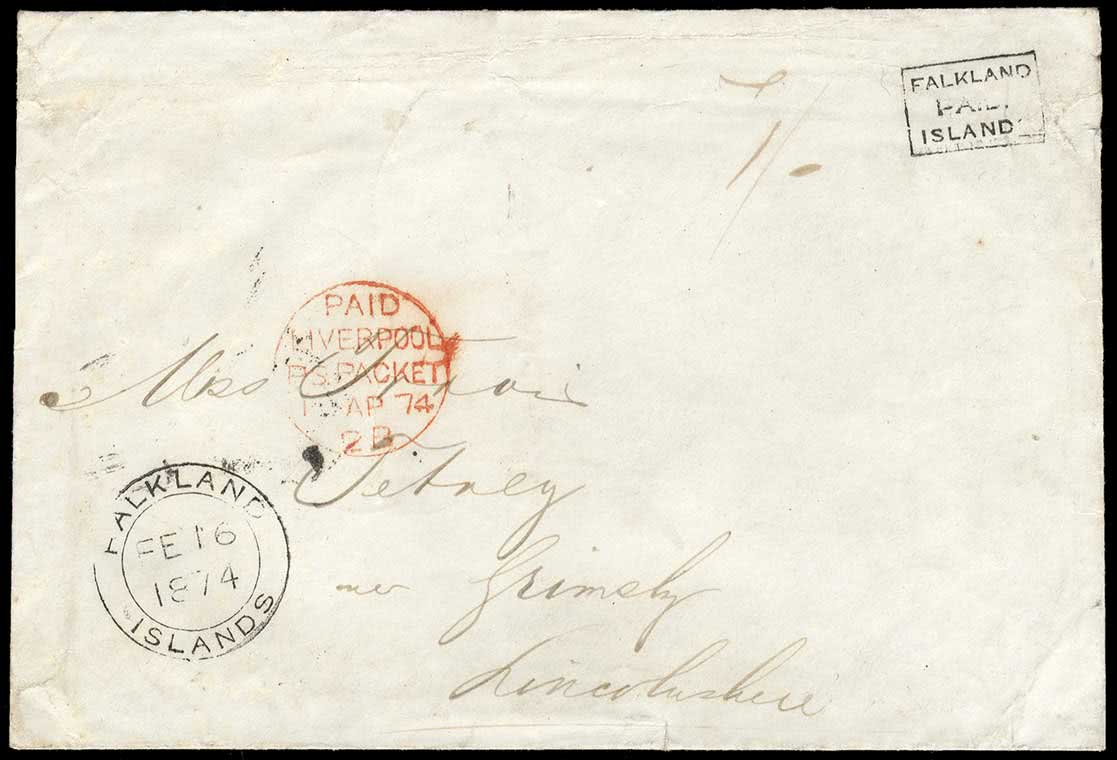 FALKLAND
PAID.
ISLANDS
1/-
PAID
LIVERPOOL
B.S.PACKET
AP 74
2B
Miss
Tetney
nr Grimsby
Lincolnshire
FALKLAND
FE 16
1874
ISLANDS